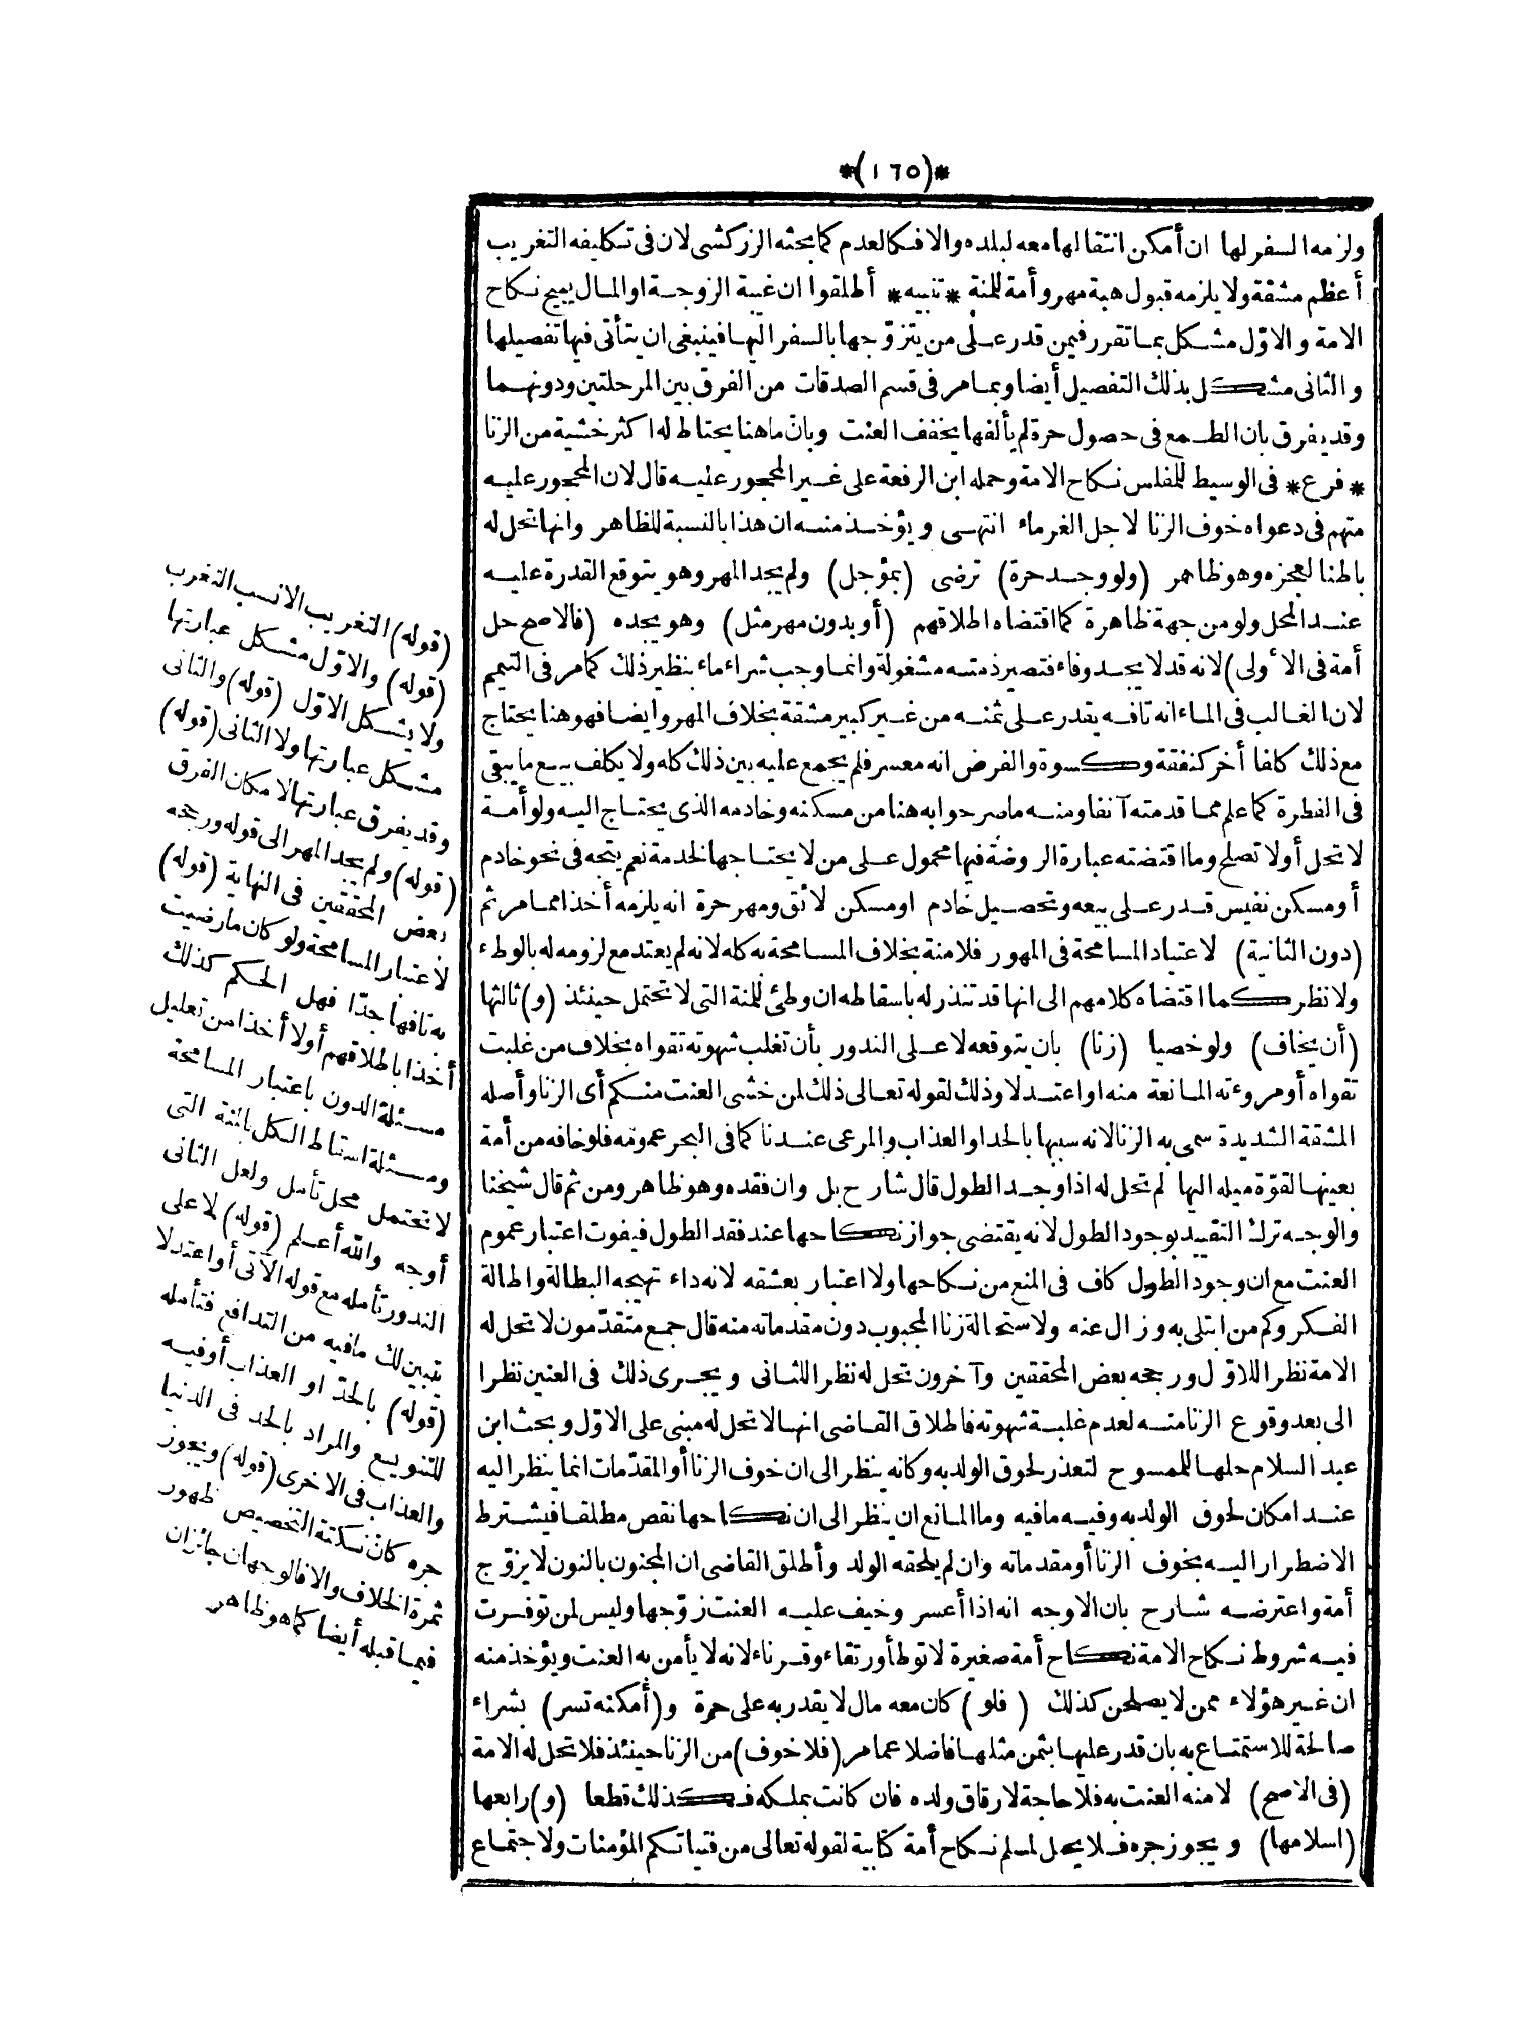 *(١٦٥)*
ولزمه السفر لها ان أمكن انتقالها معه لبلده والا فكالعدم كما بحثه الزركشى لان فى تكليفه التغريب
أعظم مشقة ولا يلزمه قبول هبة مهر وأمة للمنة * تنبيه * أطلقوا ان غيبة الزوجة او المال يبيح نكاح
الامة والاوّل مشكل بما تقرر فيمن قدر على من يتزوّجها بالسفر اليها فينبغى ان يتأتى فيها تفصيلها
والثانى مشكل بذلك التفصيل أيضا وبما مر فى قسم الصدقات من الفرق بين المرحلتين ودونهما
وقد يفرق بان الطمع فى حصول حرة لم يألفها يخفف العنت وبان ما هنا يحتاط له اكثر خشية من الزنا
* فرع * فى الوسيط للمفلس نكاح الامة وحمله ابن الرفعة على غير المحجور عليه قال لان المحجور عليه
متهم فى دعواه خوف الزنا لاجل الغرماء انتهى ويؤخذ منه ان هذا بالنسبة للظاهر وانها تحل له
باطنا لعجزه وهو ظاهر (ولو وجد حرة) ترضى (بمؤجل) ولم يجد المهر وهو يتوقع القدرة عليه
عند المحل ولو من جهة ظاهرة كما اقتضاه اطلاقهم (أو بدون مهر مثل) وهو يجده (فالاصح حل
أمة فى الاولى) لانه قد لا يجد وفاء فتصير ذمته مشغولة وانما وجب شراء ماء بنظير ذلك كما مر فى التيمم
لان الغالب فى الماء انه تافه يقدر على ثمنه من غير كبير مشقة بخلاف المهر وايضا فهو هنا يحتاج
مع ذلك كلفا أخر كنفقة وكسوة والفرض انه معسر فلم يجمع عليه بين ذلك كله ولا يكلف بيع ما يبقى
فى الفطرة كما علم مما قدمته آنفا ومنه ما صرحوا به هنا من مسكنه وخادمه الذى يحتاج اليه ولو أمة
لا تحل أو لا تصلح وما اقتضته عبارة الروضة فيها محمول على من لا يحتاجها لخدمة نعم يتجه فى نحو خادم
أو مسكن نفيس قدر على بيعه وتحصيل خادم او مسكن لائق ومهر حرة انه يلزمه أخذا مما مر ثم
(دون الثانية) لاعتياد المسامحة فى المهور فلا منة بخلاف المسامحة به كله لانه لم يعتد مع لزومه له بالوطء
ولا نظر كما اقتضاه كلامهم الى انها قد تنذر له باسقاطه ان وطئ للمنة التى لا تحتمل حينئذ (و) ثالثها
(أن يخاف) ولو خصيا (زنا) بان يتوقعه لا على الندور بأن تغلب شهوته تقواه بخلاف من غلبت
تقواه أو مروءته المانعة منه او اعتدلا وذلك لقوله تعالى ذلك لمن خشى العنت منكم أى الزنا وأصله
المشقة الشديدة سمى به الزنا لانه سببها بالحد او العذاب والمرعى عندنا كما فى البحر عمومه فلو خافه من أمة
بعينها لقوّة ميله اليها لم تحل له اذا وجد الطول قال شارح بل وان فقده وهو ظاهر ومن ثم قال شيخنا
والوجه ترك التقييد بوجود الطول لانه يقتضى جواز نكاحها عند فقد الطول فيفوت اعتبار عموم
العنت مع ان وجود الطول كاف فى المنع من نكاحها ولا اعتبار بعشقه لانه داء تهيجه البطالة واطالة
الفكر وكم من ابتلى به وزال عنه ولاستحالة زنا المجبوب دون مقدماته منه قال جمع متقدّمون لا تحل له
الامة نظرا للاوّل ورجحه بعض المحققين وآخرون تحل له نظرا للثانى ويجرى ذلك فى العنين نظرا
الى بعد وقوع الزنا منه لعدم غلبة شهوته فاطلاق القاضى انها لا تحل له مبنى على الاوّل وبحث ابن
عبد السلام حلها للممسوح لتعذر لحوق الولد به وكانه ينظر الى ان خوف الزنا أو المقدّمات انما ينظر اليه
عند امكان لحوق الولد به وفيه ما فيه وما المانع ان ينظر الى ان نكاحها نقص مطلقا فيشترط
الاضطرار اليه بخوف الزنا أو مقدماته وان لم يلحقه الولد وأطلق القاضى ان المجنون بالنون لا يزوّج
أمة واعترضه شارح بان الاوجه انه اذا أعسر وخيف عليه العنت زوّجها وليس لمن توفرت
فيه شروط نكاح الامة نكاح أمة صغيرة لا توطأ ورتقاء وقرناء لانه لا يأمن به العنت ويؤخذ منه
ان غير هؤلاء ممن لا يصلحن كذلك (فلو) كان معه مال لا يقدر به على حرة و(أمكنه تسر) بشراء
صالحة للاستمتاع به بان قدر عليها بثمن مثلها فاضلا عما مر (فلا خوف) من الزنا حينئذ فلا تحل له الامة
(فى الاصح) لامنه العنت به فلا حاجة لارقاق ولده فان كانت بملكه فكذلك قطعا (و) رابعها
(اسلامها) ويجوز جره فلا يحل لمسلم نكاح أمة كتابية لقوله تعالى من فتياتكم المؤمنات ولاجتماع
(قوله) التغريب الانسب التغرب
(قوله) والاوّل مشكل عبارتها
ولا يشكل الاوّل (قوله) والثانى
مشكل عبارتها ولا الثانى (قوله)
وقد يفرق عبارتها لامكان الفرق
(قوله) ولم يجد المهر الى قوله ورجحه
بعض المحققين فى النهاية (قوله)
لاعتبار المسامحة ولو كان ما رضيت
به تافها جدّا فهل الحكم كذلك
أخذا باطلاقهم أولا أخذا من تعليل
مسئلة الدون باعتبار المسامحة
ومسئلة اسقاط الكل بالمنة التى
لا تحتمل محل تأمل ولعل الثانى
أوجه والله أعلم (قوله) لا على
الندور تأمله مع قوله الآتى أو اعتدلا
يتبين لك ما فيه من التدافع فتأمله
(قوله) بالحدّ او العذاب أو فيه
للتنويع والمراد بالحد فى الدنيا
والعذاب فى الاخرى (قوله) ويجوز
جره كان نكتة التخصيص ظهور
ثمرة الخلاف والا فالوجهان جائزان
فيما قبله أيضا كما هو ظاهر